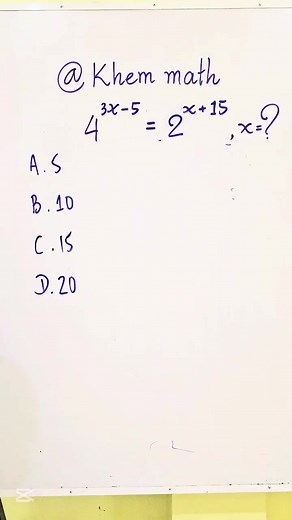 @ Khem math
4^{3x-5} = 2^{x+15}, x=?
A. 5
B. 10
C. 15
D. 20
CapCut